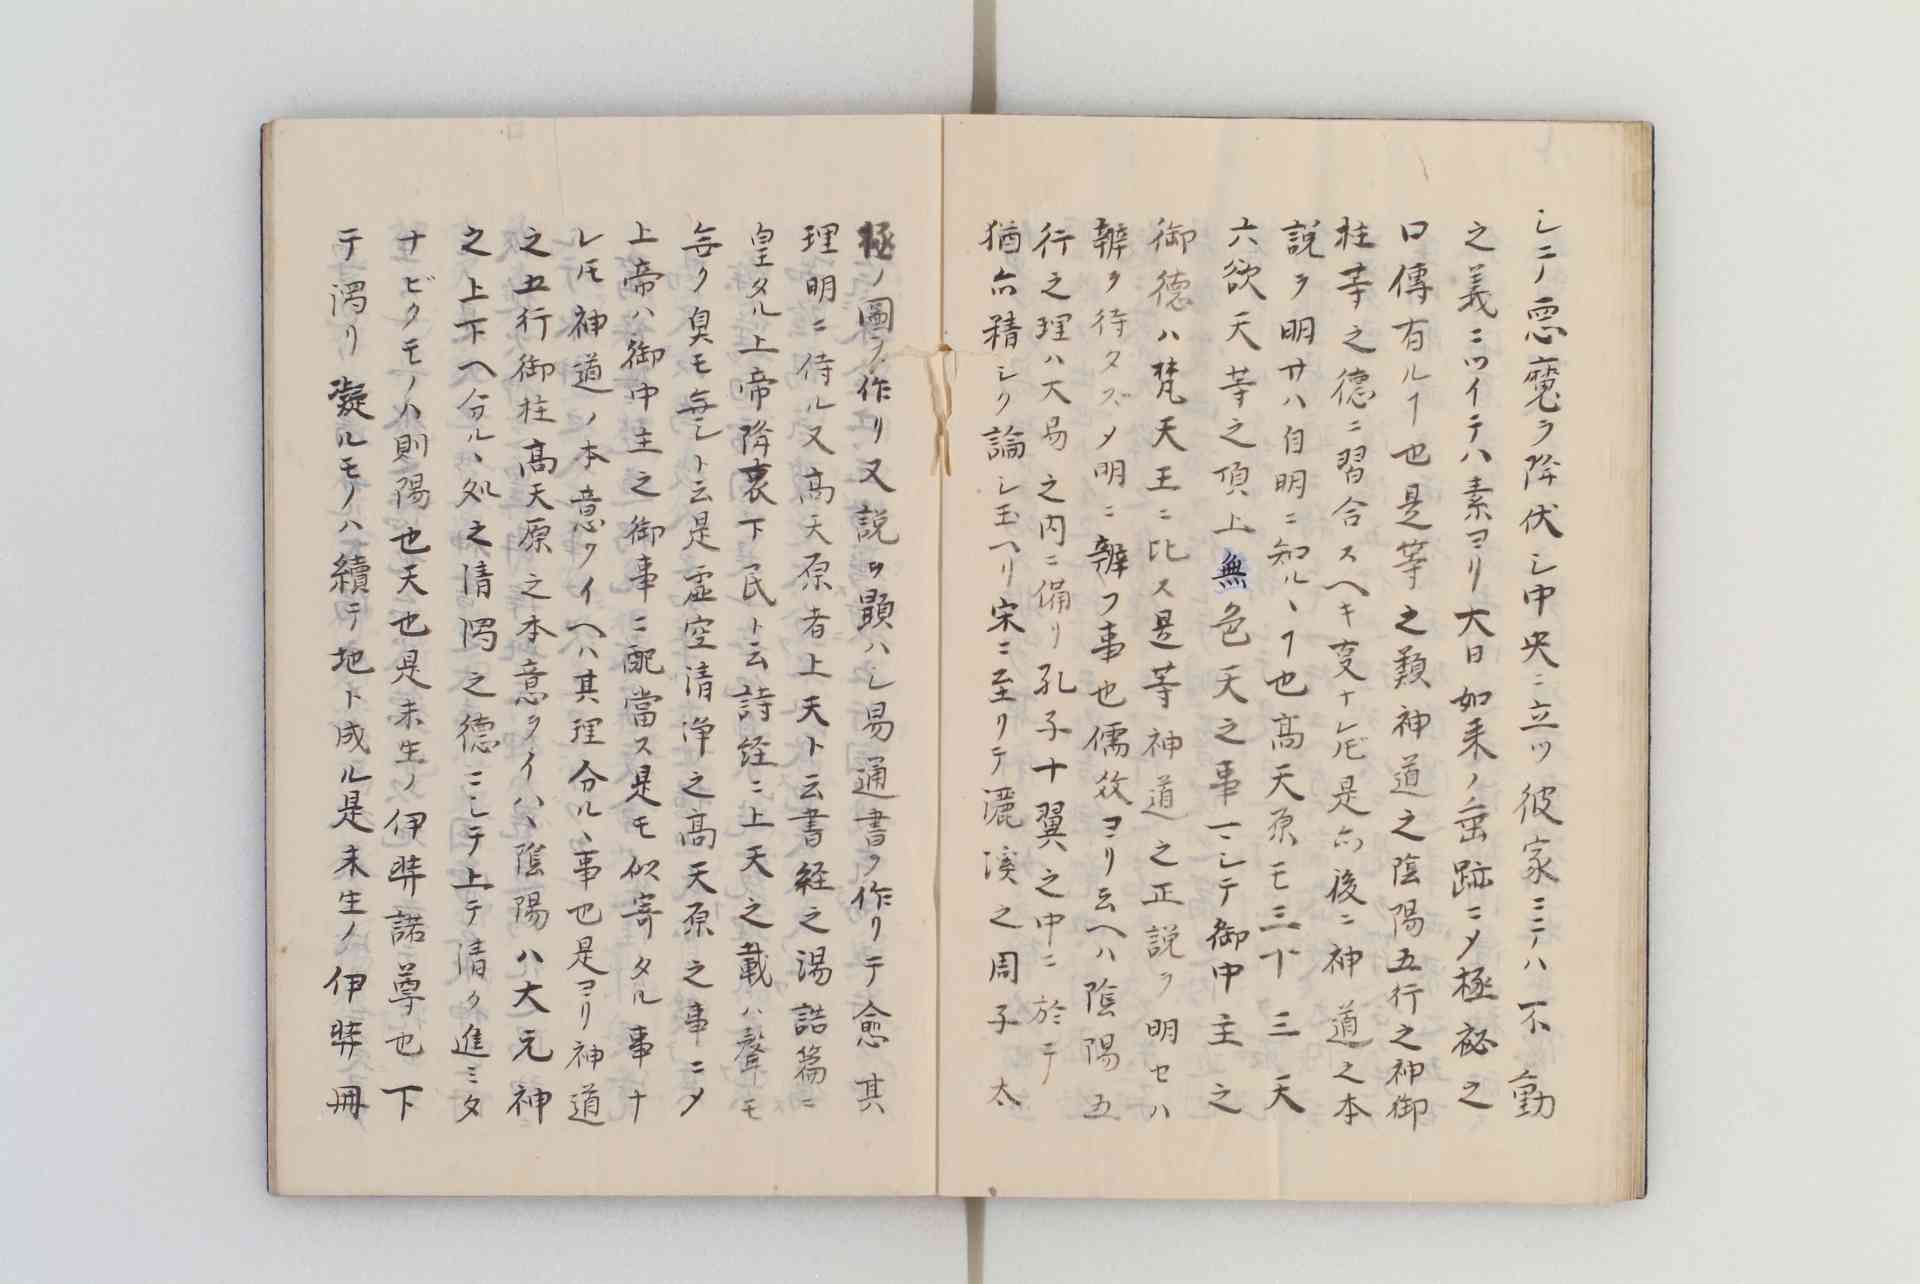 シテ悪魔ヲ降伏シ中央ニ立ツ彼家ニテハ不動
之義ニツイテハ素ヨリ大日如来ノ垂跡ニメ極秘之
口傳有ルヿ也是等之類神道之陰陽五行之神御
柱等之德ニ習合スヘキ変ナレ𪜈是亦後ニ神道之本
説ヲ明サハ自明ニ知ルヽヿ也高天原モ三十三天
六欲天等之頂上無色天之事ニシテ御中主之
御德ハ梵天王ニ比ス是等神道之正説ヲ明セハ
辨ヲ待タズメ明ニ辨フ事也儒教ヨリ云ヘハ陰陽五
行之理ハ大易之内ニ備リ孔子十翼之中ニ於テ
猶亦精シク論シ玉ヘリ宋ニ至リテ濂溪之周子太
極ノ圖ヲ作リ又説ヲ顕ハシ易通書ヲ作リテ愈其
理明ニ侍ル又高天原者上天ト云書経之湯誥篇ニ
皇タル上帝降衷下民ト云詩経ニ上天之載ハ聲モ
無ク臭モ無シト云是虚空清浄之高天原之事ニメ
上帝ハ御中主之御事ニ配當ス是モ似寄タル事ナ
レ𪜈神道ノ本意ヲイヘハ其理分ルヽ事也是ヨリ神道
之五行御柱高天原之本意ヲイハヽ陰陽ハ大元神
之上下ヘ分ルヽ処之清濁之德ニシテ上テ清ク進ミタ
ナビクモノハ則陽也天也是未生ノ伊弉諾尊也下
テ濁リ凝ルモノハ續テ地ト成ル是未生ノ伊弉冊